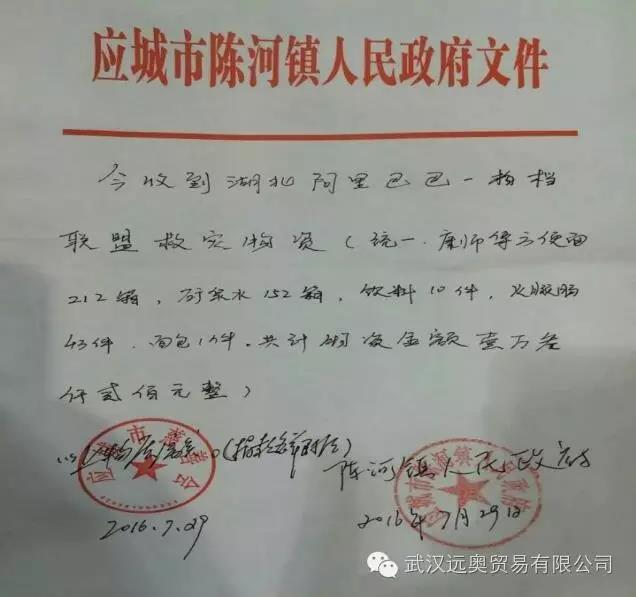 应城市陈河镇人民政府文件
今收到湖北阿里巴巴一拍档
联盟救灾物资(统一.康师傅方便面
212箱,矿泉水152箱,饮料10件,火腿肠
43件.面包1件.共计物资金额壹万叁
仟贰佰元整)
应城市慈善会
陈河镇人民政府
2016.7.29
2016年7月29日
武汉远奥贸易有限公司